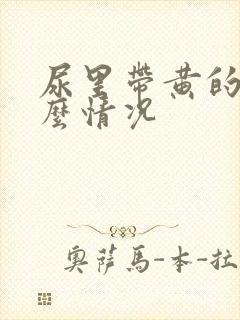 尿里带黄的
麼情况
奥萨马-本-拉